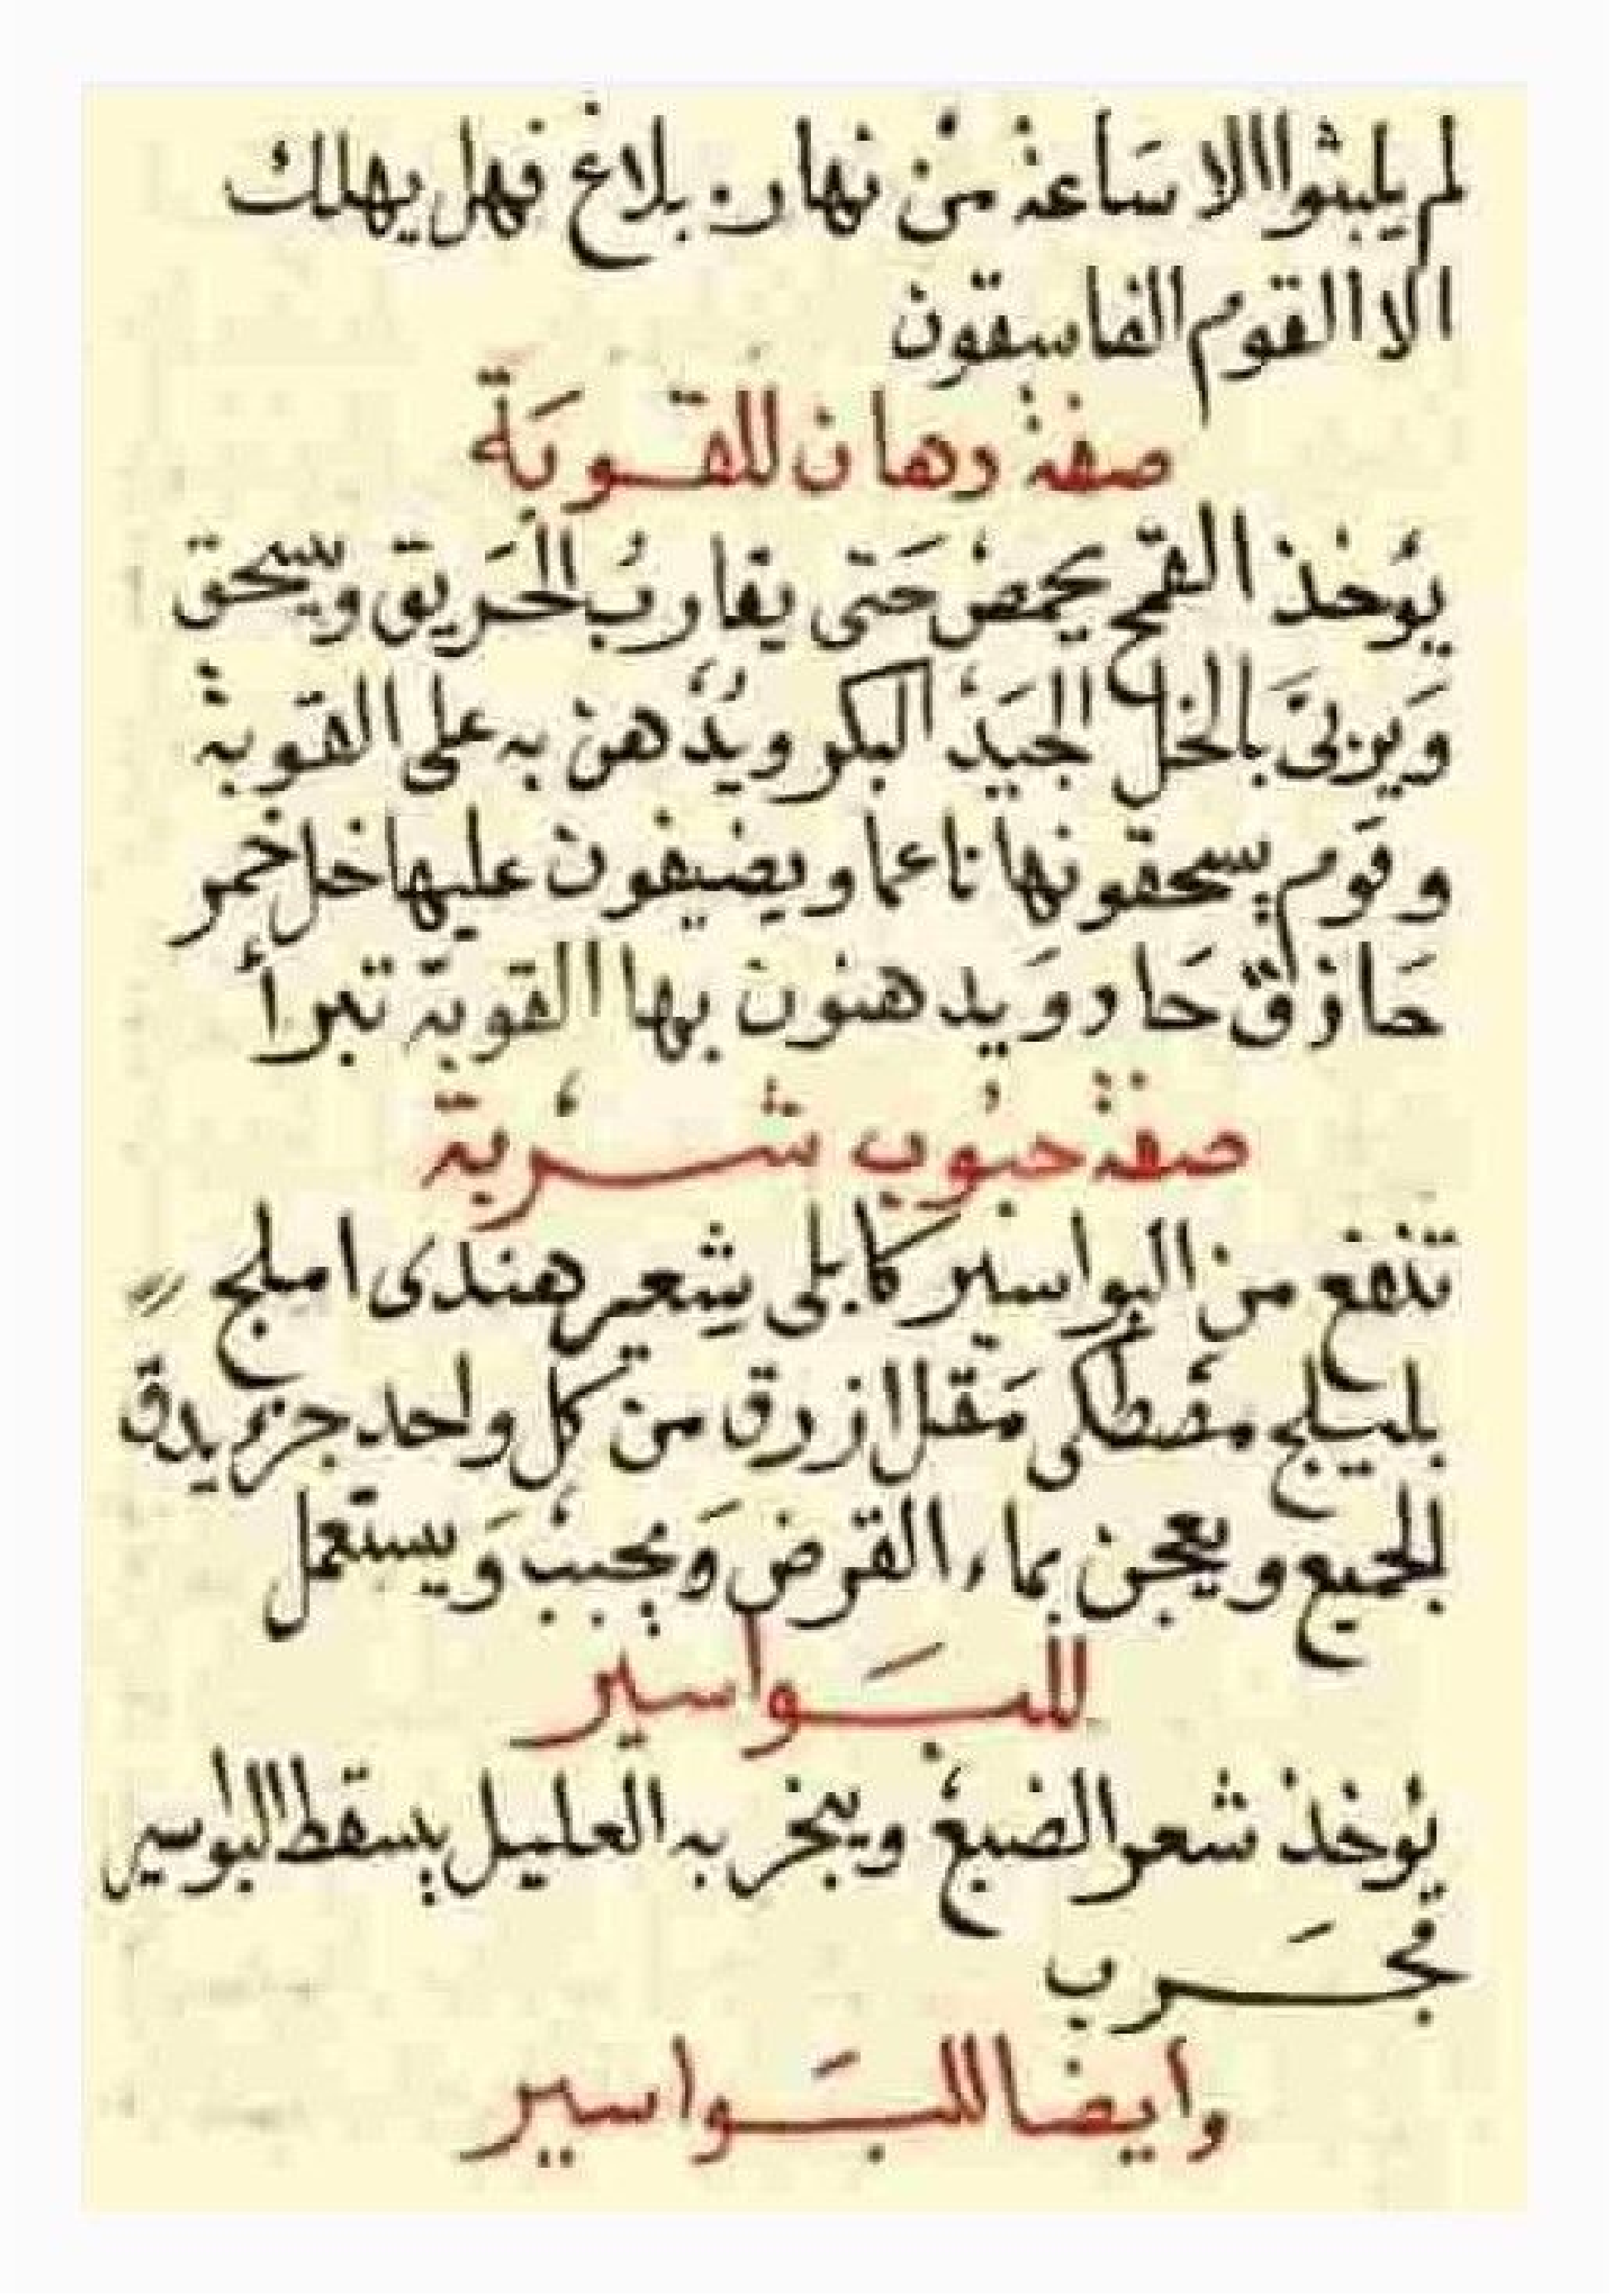 لم يلبثوا الا سَاعة من نهار بلاغ فهل يهلك
الا القوم الفاسقون
صفة دهان للقوبَة
يُوخذ القمح يحمض حَتى يقاربُ الحَريق ويسحق
وَيربىَ بالخل الجيَد البكر ويدهن به على القوبة
وقوم يسحقونها ناعما ويضيفون عليها خل خمر
حَاذق حَاد وَيدهنون بها القوبة تبرأ
صفة حبُوب شربة
تنفع من البواسير كابلى شعير هندى املج
بليلج مصطكى مَقل ازرق من كل واحد جزء يدق
الجميع ويعجن بماء القرض وَيحبب وَيستعمل
للبَواسير
يُوخذ شعر الضبع ويبخر به العليل يسقط البواسير
مجَرب
وايضا للبَواسير